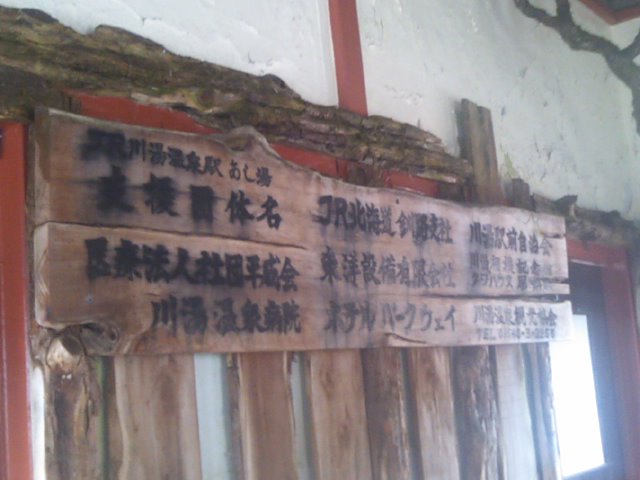 JR川湯温泉駅 あし湯
支援団体名
医療法人社団平成会
川湯温泉病院
JR北海道釧路支社
東洋設備有限会社
ホテルパークウェイ
川湯駅前自治会
川湯相撲記念館
川湯温泉観光協会